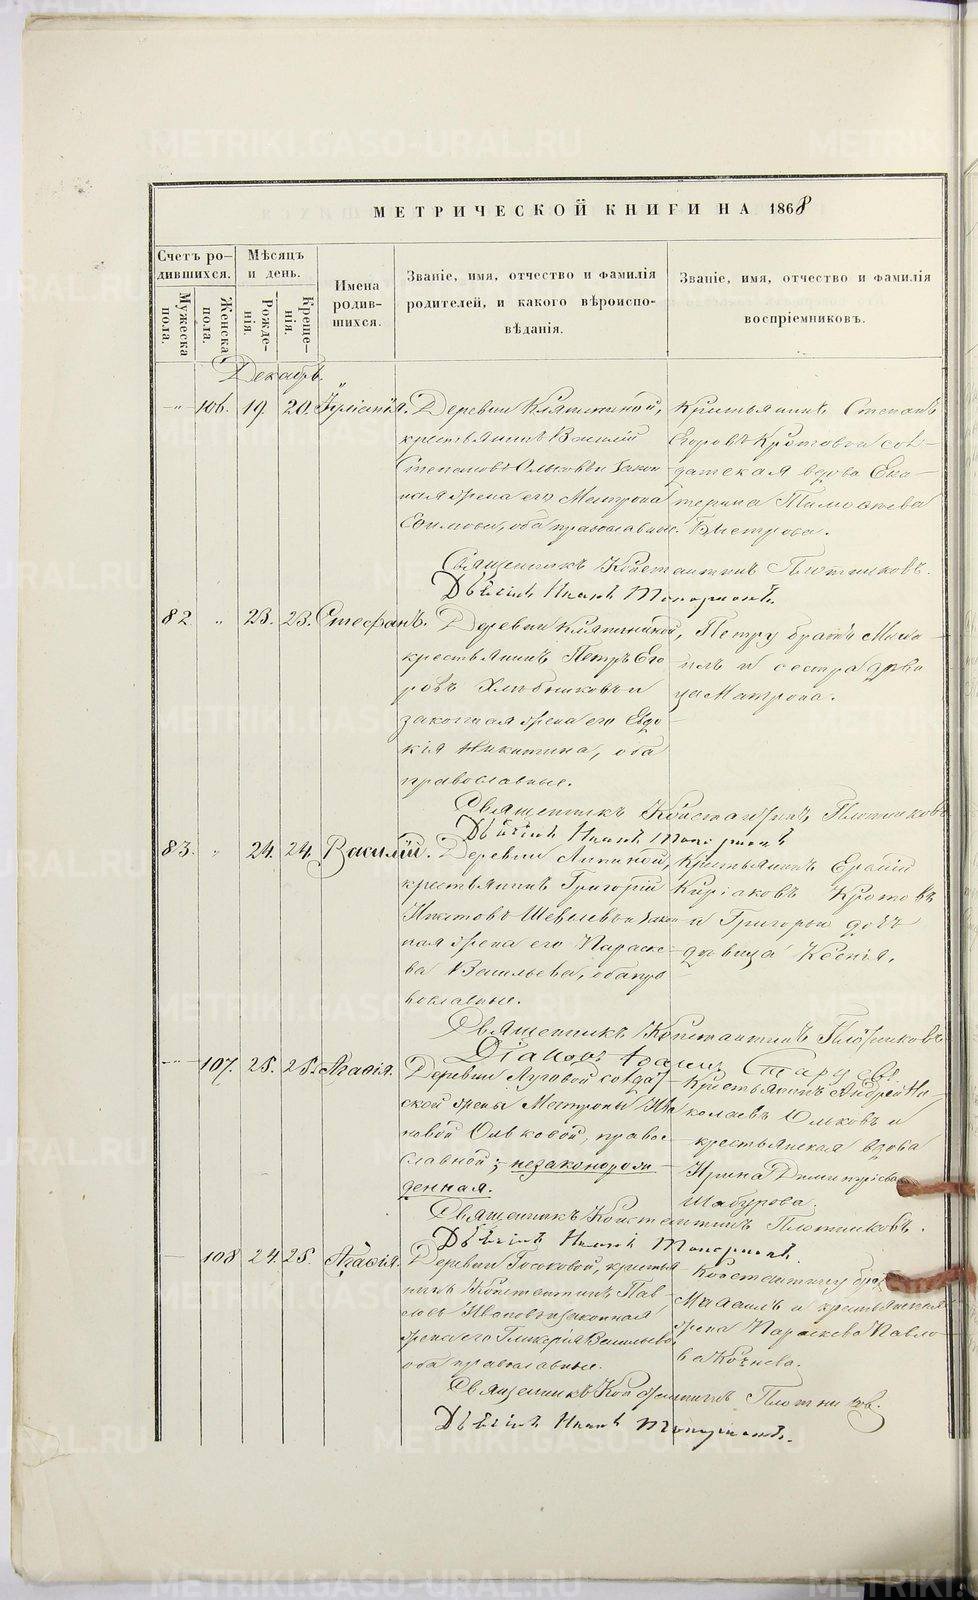 МЕТРИЧЕСКОЙ КНИГИ НА 1868
Счетъ ро-
дившихся.
Мужеска
пола.
Женска
пола.
Мѣсяцъ
и день.
Рожде-
нія.
Креще-
нія.
Имена
родив-
шихся.
Званіе, имя, отчество и фамилія
родителей, и какого вѣроиспо-
вѣданія.
Званіе, имя, отчество и фамилія
воспріемниковъ.
Декабрь.
106. 19. 20. Іуліанія.
Деревни
крестьянинъ Василій
Степановъ
ная жена его Матрона
Ефимова, оба православные.
Крестьянинъ Степанъ
Егоровъ Кротовъ и сол-
датская вдова Ека-
терина Тимофеева
Священникъ Константинъ Плотниковъ.
Дьячекъ Иванъ
82 23. 23. Стефанъ.
Деревни
крестьянинъ Петръ Его
ровъ Хлѣбниковъ и
законная жена его Евдо-
кія Никитина, оба
православные.
Петру братъ Миха-
илъ и сестра дѣви
ца Матрона.
Священникъ Константинъ Плотниковъ
Дьячекъ Иванъ
83. 24. 24. Василій.
Деревни Липиной,
крестьянинъ Григорій
ная жена его Параске-
ва Васильева, оба пра
вославные.
Крестьянинъ
Киріаковъ Кротовъ
и Григорья дочь
дѣвица Ксенія.
Священникъ Константинъ Плотниковъ
Діаконъ Іоаннъ
107. 25. 25. Агафія.
Деревни Луговой солдат-
ской жены Матроны Ива
новой Ольковой, право-
славной; незаконорож-
денная.
Крестьянинъ Андрей Ни-
колаевъ Ольковъ и
крестьянская вдова
Ирина Димитріева
Шабурова.
Священникъ Константинъ Плотниковъ.
Дьячекъ Иванъ
108 24. 25. Агафія.
Деревни
нинъ Константинъ Пав-
ловъ Ивановъ и законная
жена его Гликерія Васильева
оба православные.
Константину братъ
Михаилъ и крестьянская
жена Параскева Павло-
ва
Священникъ Константинъ Плотниковъ.
Дьячекъ Иванъ